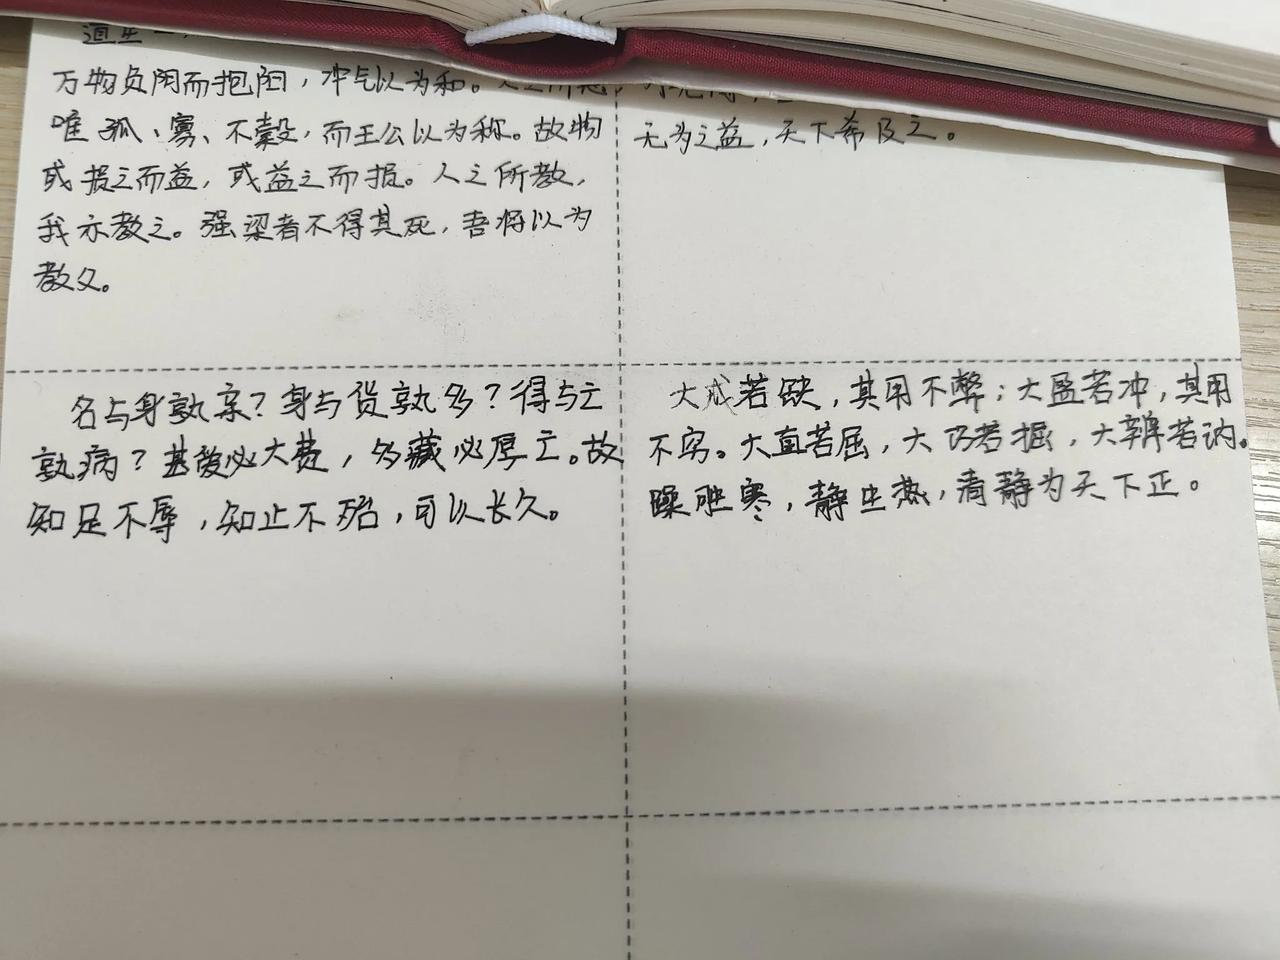 道生一
万物负阴而抱阳，冲气以为和。人之所恶，
唯孤、寡、不穀，而王公以为称。故物
或损之而益，或益之而损。人之所教，
我亦教之。强梁者不得其死，吾将以为
教父。
无为之益，天下希及之。
名与身孰亲？身与货孰多？得与亡
孰病？甚爱必大费，多藏必厚亡。故
知足不辱，知止不殆，可以长久。
大成若缺，其用不弊；大盈若冲，其用
不穷。大直若屈，大巧若掘，大辩若讷。
躁胜寒，静生热，清静为天下正。